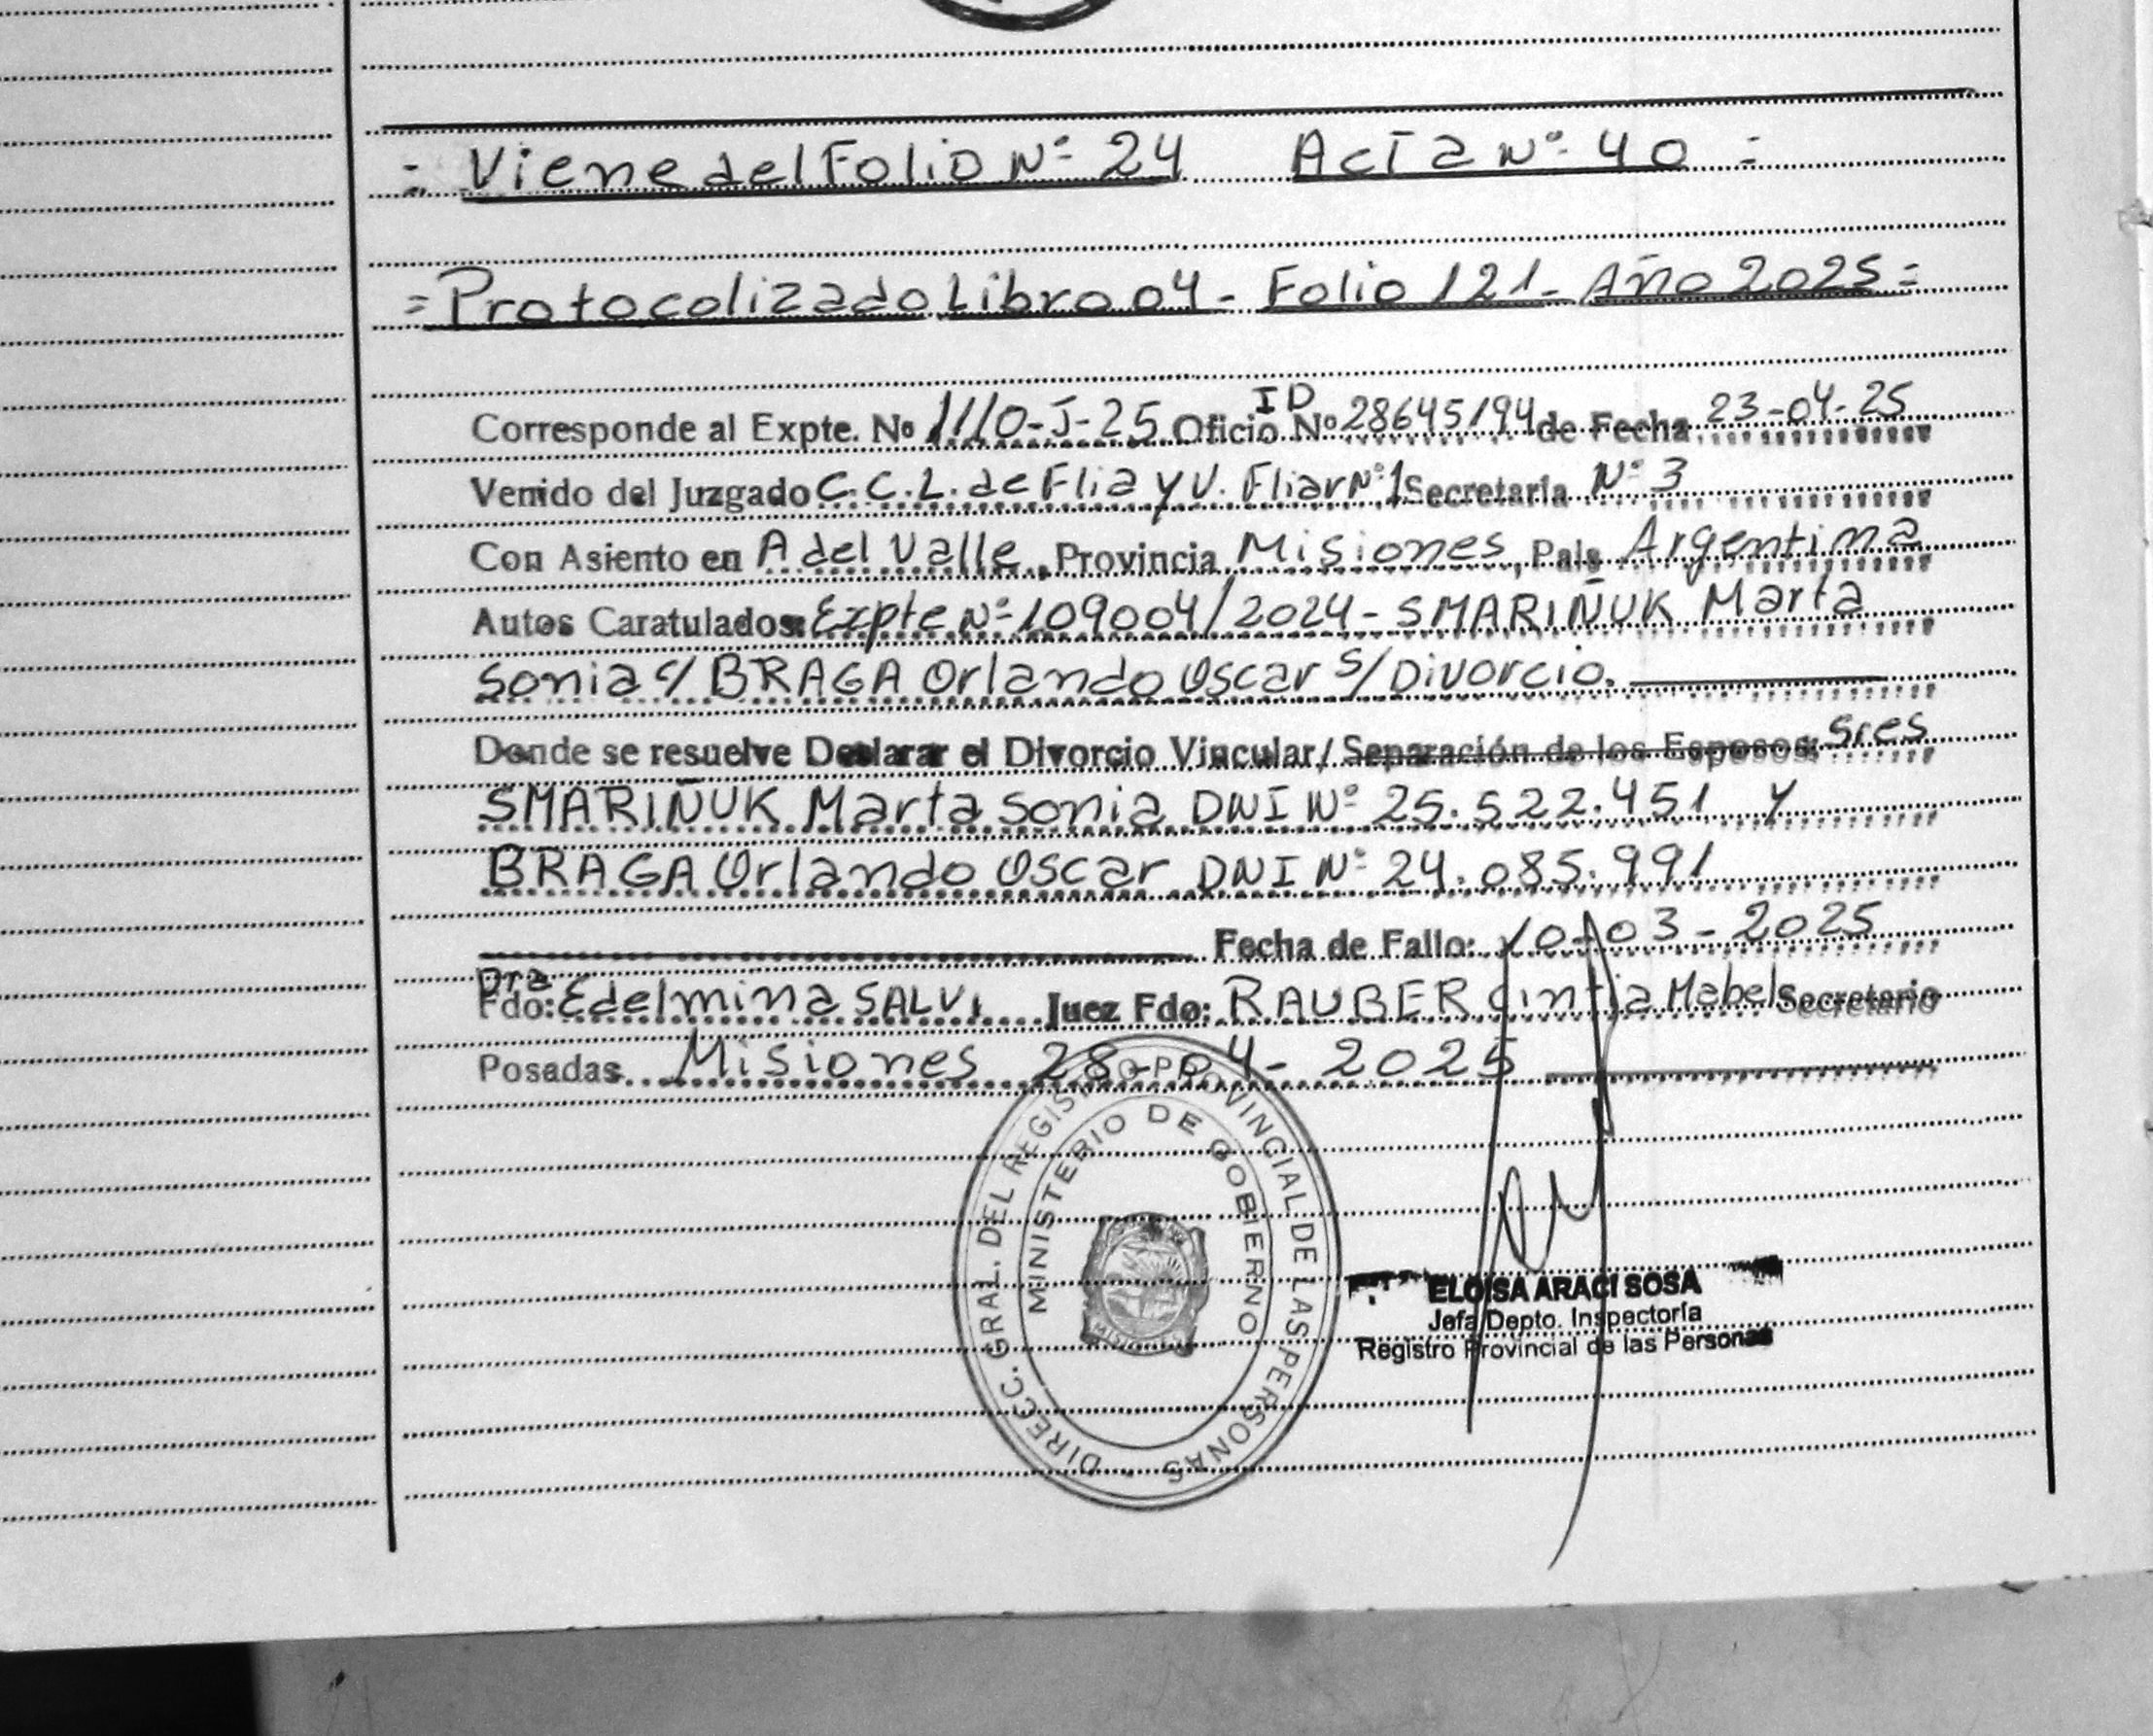 = Viene del Folio Nº 24 Acta Nº 40 =
= Protocolizado Libro 04 - Folio 121 - Año 2025 =
ID
Corresponde al Expte. Nº 1110-J-25 Oficio Nº 28645194 de Fecha 23-04-25
Venido del Juzgado C.C.L. de Flia y V. Fliar Nº 1 Secretaría Nº 3
Con Asiento en A del Valle, Provincia Misiones, País Argentina
Autos Caratulados: Expte Nº 109004/2024 - SMARIÑUK Marta
Sonia c/ BRAGA Orlando Oscar s/ Divorcio.
Donde se resuelve Declarar el Divorcio Vincular/ Separación de los Esposos: Sres
SMARIÑUK Marta Sonia DNI Nº 25.522.451 y
BRAGA Orlando Oscar DNI Nº 24.085.991
Fecha de Fallo: 10-03-2025
Dra
Fdo: Edelmina SALVI Juez Fdo: RAUBER Cintia Mabel Secretario
Posadas Misiones 28-04-2025
DIRECC. GRAL. DEL REGISTRO PROVINCIAL DE LAS PERSONAS
MINISTERIO DE GOBIERNO
MISIONES
ELOISA ARACI SOSA
Jefa Depto. Inspectoría
Registro Provincial de las Personas